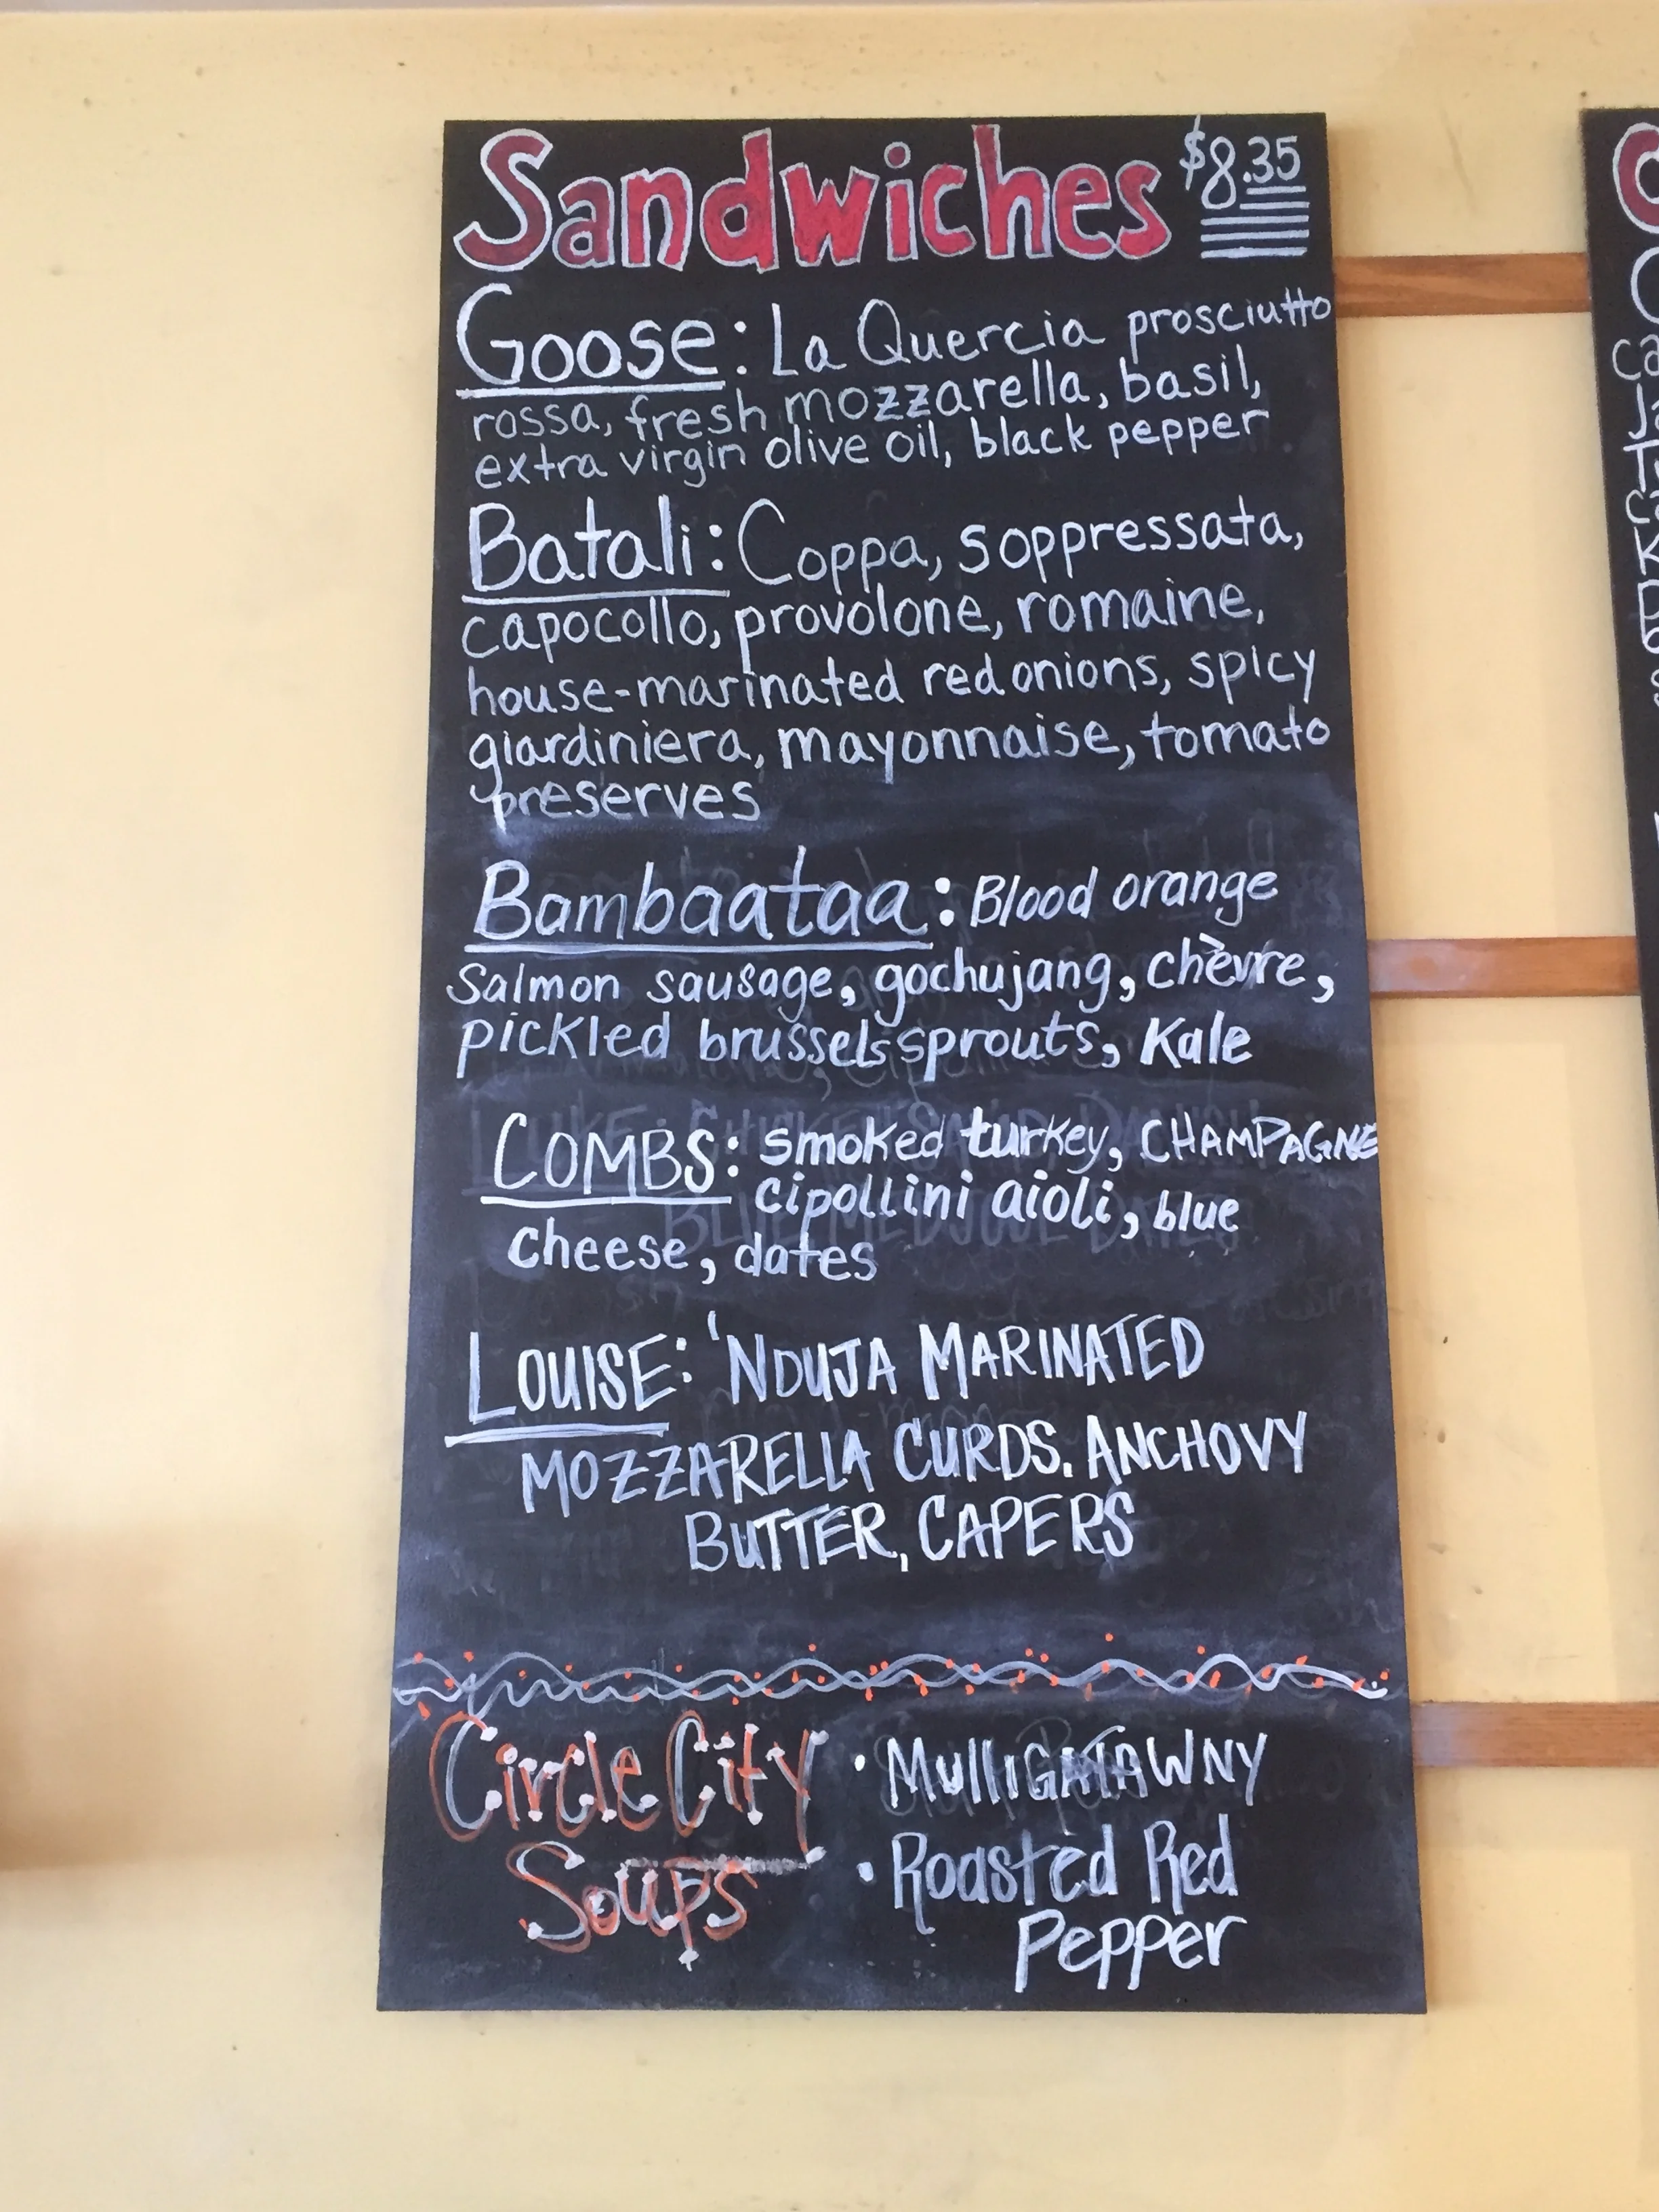 Sandwiches $8.35
Goose: La Quercia prosciutto
rossa, fresh mozzarella, basil,
extra virgin olive oil, black pepper
Batali: Coppa, soppressata,
capocollo, provolone, romaine,
house-marinated red onions, spicy
giardiniera, mayonnaise, tomato
preserves
Bambaataa: Blood orange
Salmon sausage, gochujang, chèvre,
pickled brussels sprouts, Kale
COMBS: smoked turkey, CHAMPAGNE
cipollini aioli, blue
cheese, dates
LOUISE: 'NDUJA MARINATED
MOZZARELLA CURDS. ANCHOVY
BUTTER, CAPERS
Circle City
Soups
• MulliGATAWNY
• Roasted Red
Pepper